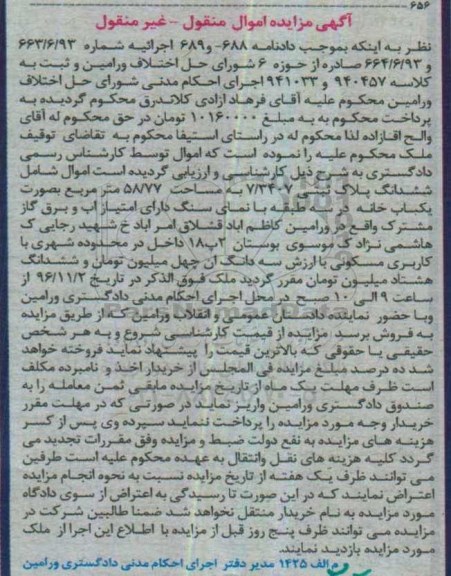 ۶۵۶
آگهی مزایده اموال منقول - غیر منقول
نظر به اینکه بموجب دادنامه ۶۸۸- و۶۸۹ اجرائیه شماره ۶۶۳/۶/۹۳
و ۶۶۴/۶/۹۳ صادره از حوزه ۶ شورای حل اختلاف ورامین و ثبت به
کلاسه ۹۴۰۴۵۷ و ۹۴۱۰۳۳ اجرای احکام مدنی شورای حل اختلاف
ورامین محکوم علیه آقای فرهاد ازادی کلاندرق محکوم گردیده به
پرداخت محکوم به به مبلغ ۱۰۱۶۰۰۰۰ تومان در حق محکوم له آقای
والح اقازاده لذا محکوم له در راستای استیفا محکوم به تقاضای توقیف
ملک محکوم علیه را نموده است که اموال توسط کارشناس رسمی
دادگستری به شرح ذیل کارشناسی و ارزیابی گردیده است اموال شامل
ششدانگ پلاک ثبتی ۷/۳۴۰۷ به مساحت ۵۸۷۷ متر مربع بصورت
یکباب خانه سه طبقه با نمای سنگ دارای امتیاز اب و برق گاز
مشترک واقع در ورامین کاظم اباد قشلاق امر اباد خ شهید رجایی ک
هاشمی نژاد ک موسوی بوستان ۲پ۱۸ داخل در محدوده شهری با
کاربری مسکونی با ارزش سه دانگ آن چهل میلیون تومان و ششدانگ
هشتاد میلیون تومان مقرر گردید ملک فوق الذکر در تاریخ ۹۶/۱۱/۲ از
ساعت ۹ الی ۱۰ صبح در محل اجرای احکام مدنی دادگستری ورامین
وبا حضور نماینده دادستان عمومی و انقلاب ورامین که از طریق مزایده
به فروش برسد مزایده از قیمت کارشناسی شروع و به هر شخص
حقیقی یا حقوقی که بالاترین قیمت را پیشنهاد نماید فروخته خواهد
شد ده درصد مبلغ مزایده فی المجلس از خریدار اخذ و نامبرده مکلف
است ظرف مهلت یک ماه از تاریخ مزایده مابقی ثمن معامله را به
صندوق دادگستری ورامین واریز نماید در صورتی که در مهلت مقرر
خریدار وجه مورد مزایده را پرداخت ننماید سپرده وی پس از کسر
هزینه های مزایده به نفع دولت ضبط و مزایده وفق مقررات تجدید می
گردد کلیه هزینه های نقل وانتقال به عهده محکوم علیه است طرفین
می توانند ظرف یک هفته از تاریخ مزایده نسبت به نحوه انجام مزایده
اعتراض نمایند که در این صورت تا رسیدگی به اعتراض از سوی دادگاه
مورد مزایده به نام خریدار منتقل نخواهد شد ضمنا طالبین شرکت در
مزایده می توانند ظرف پنج روز قبل از مزایده با اطلاع این اجرا از ملک
مورد مزایده بازدید نمایند.
م الف ۱۴۲۵ مدیر دفتر اجرای احکام مدنی دادگستری ورامین